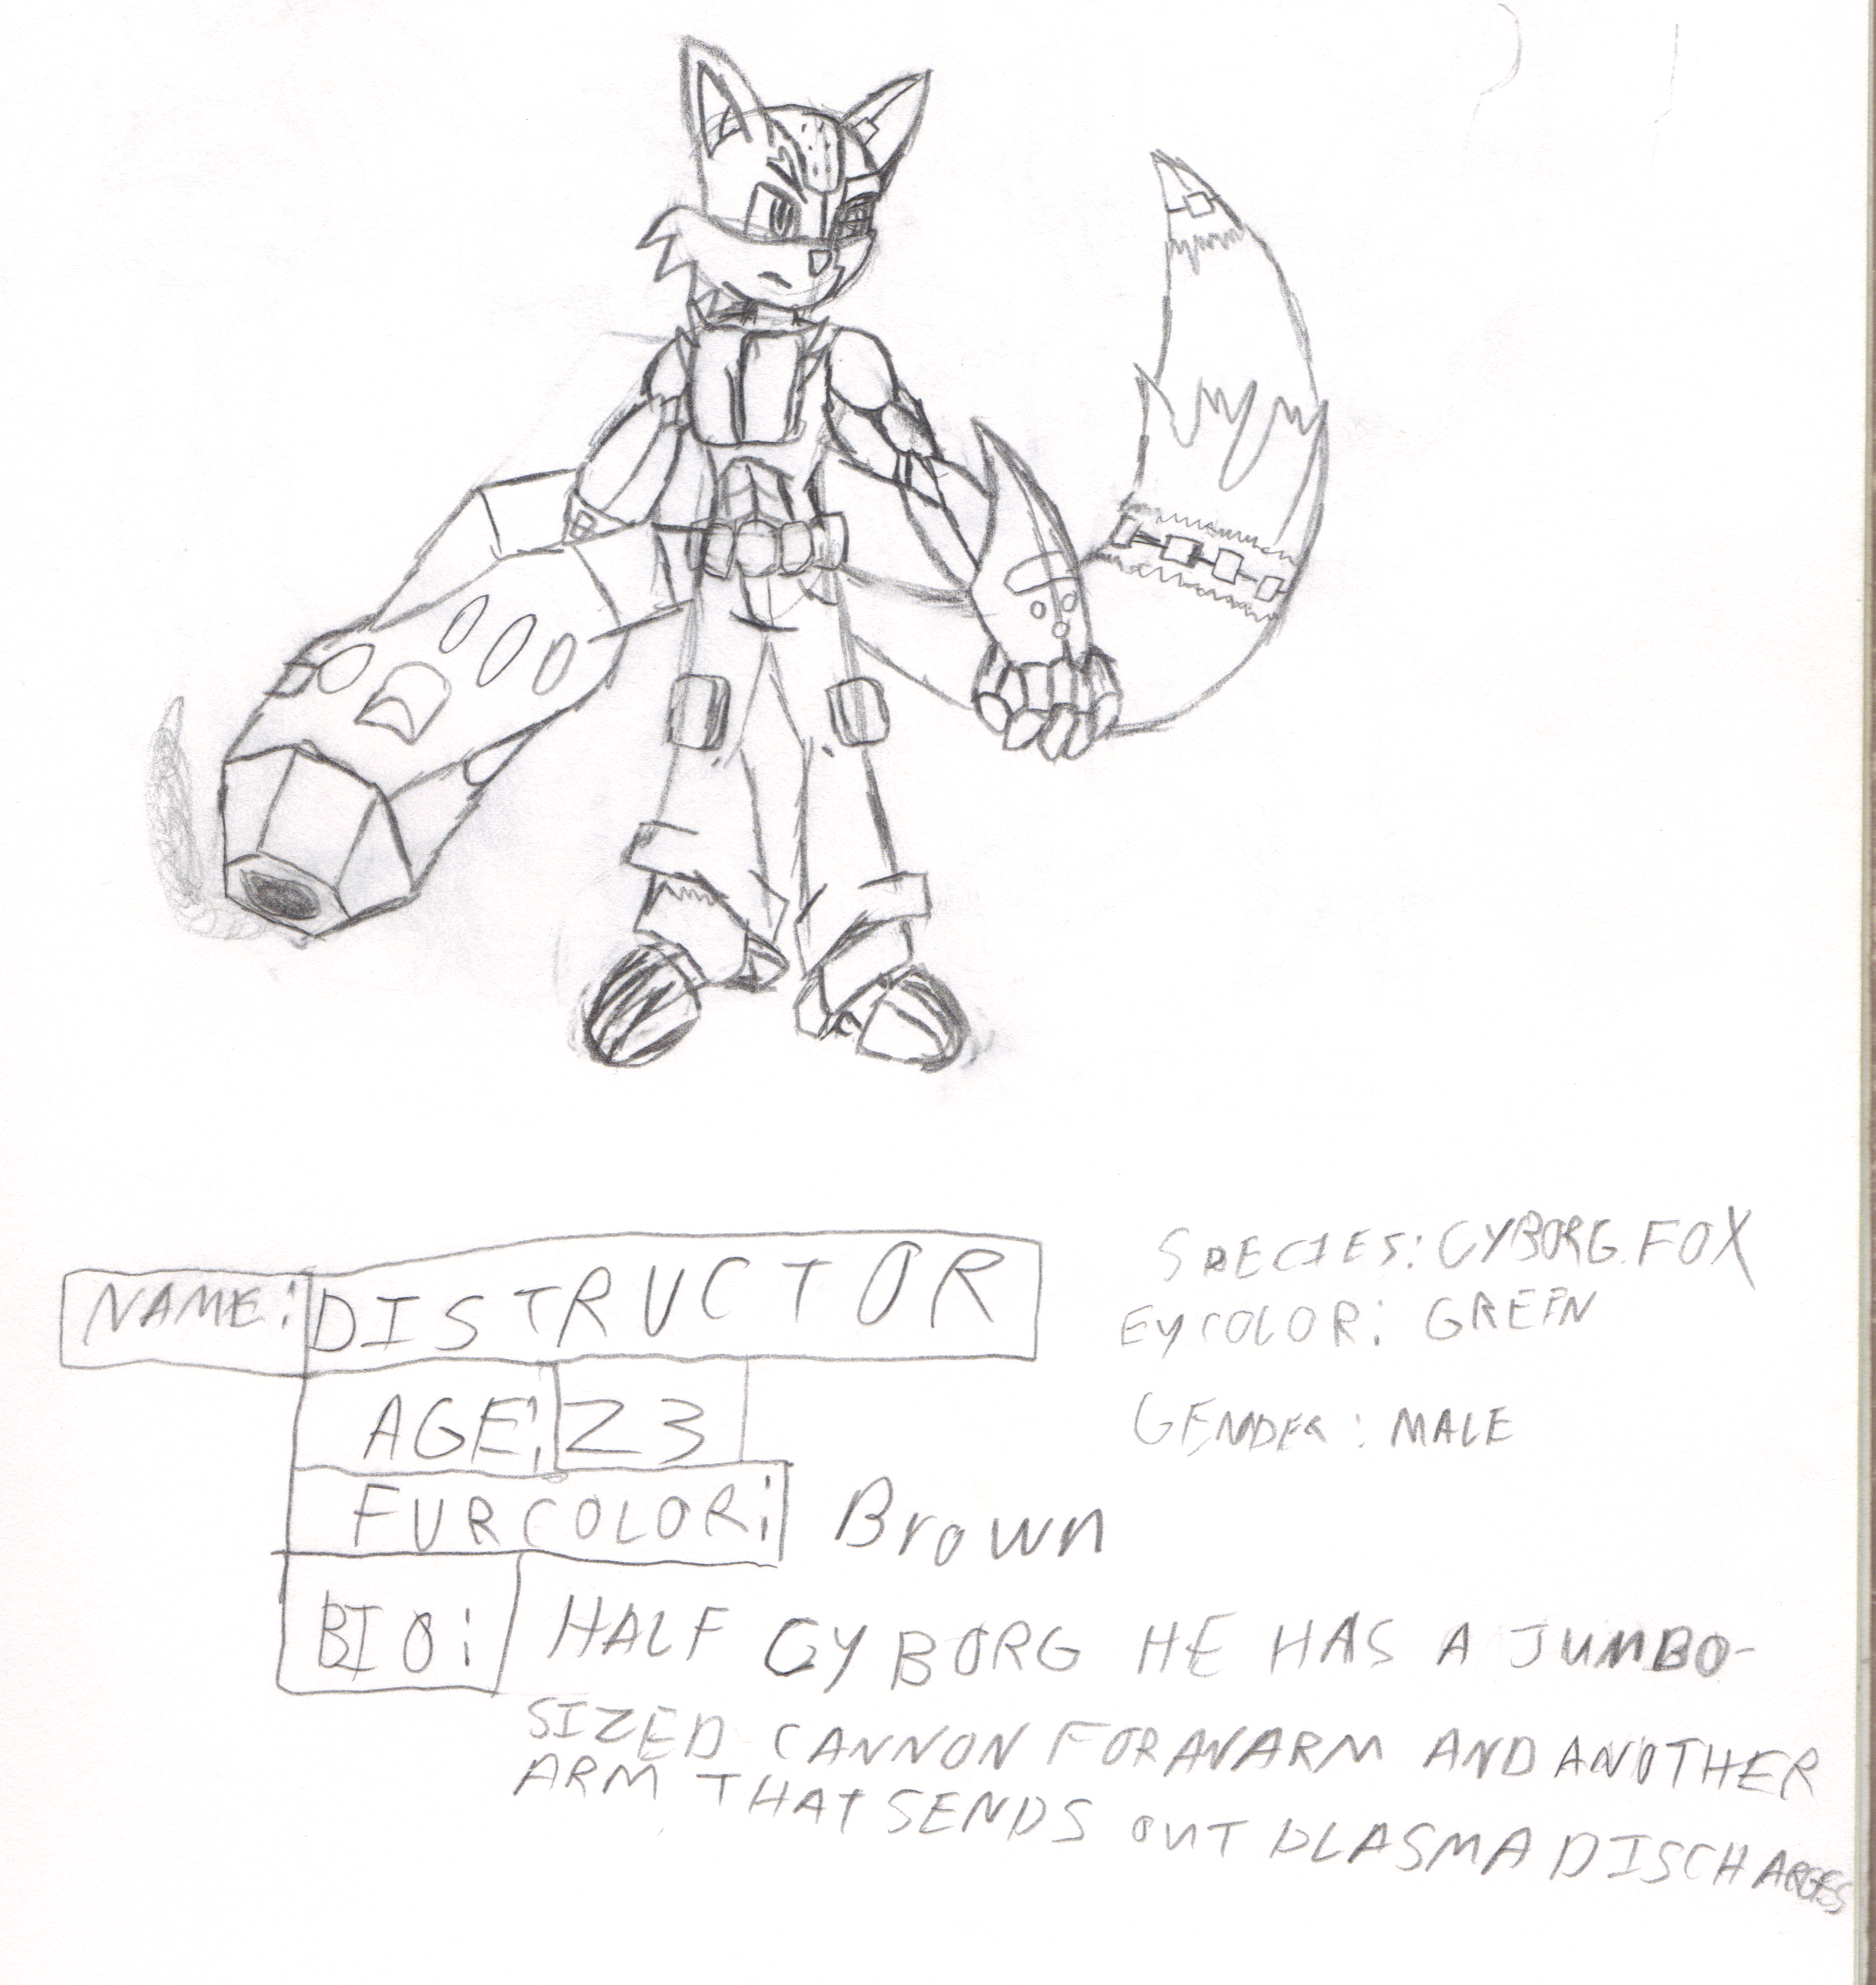 NAME: DISTRUCTOR
AGE: 23
FURCOLOR: Brown
BIO: HALF CYBORG HE HAS A JUMBO-
SIZED CANNON FOR AN ARM AND ANOTHER
ARM THAT SENDS OUT PLASMA DISCHARGES
SPECIES: CYBORG FOX
EYCOLOR: GREEN
GENDER: MALE